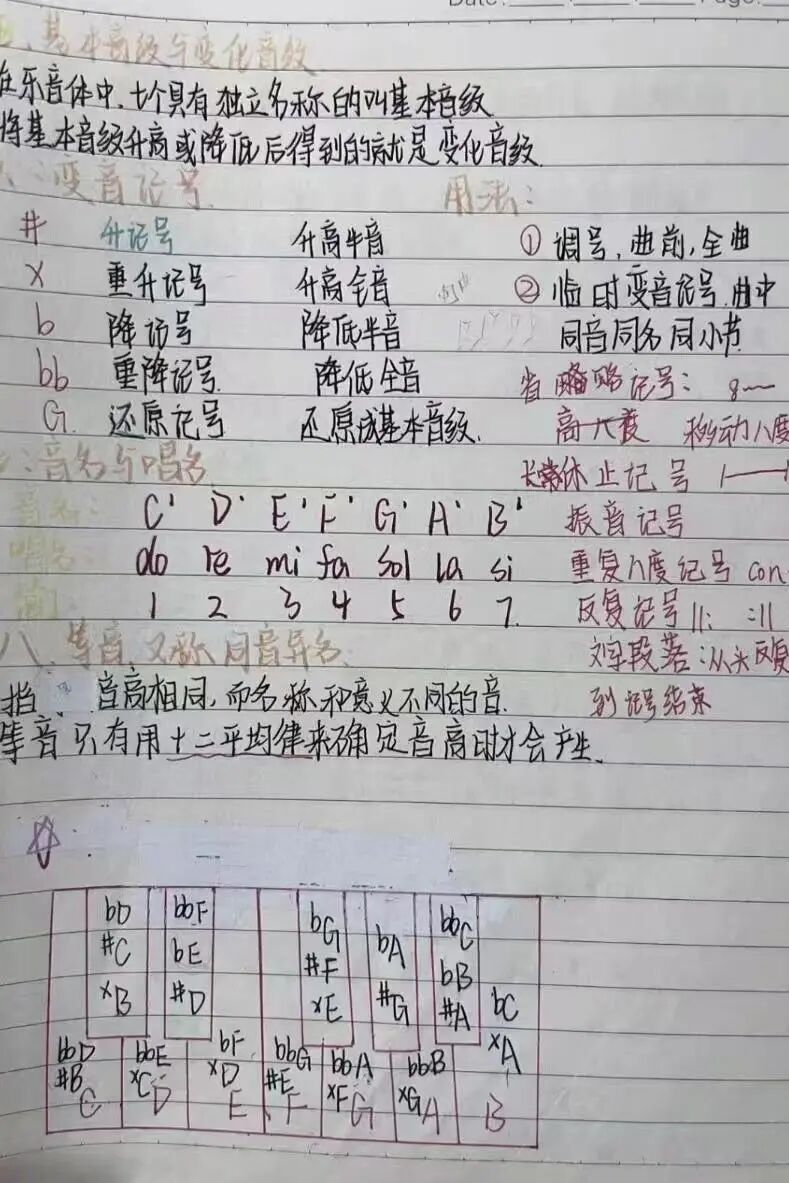 Date: Page:
五、基本音级与变化音级
在乐音体中,七个具有独立名称的叫基本音级
将基本音级升高或降低后得到的就是变化音级
六:变音记号 用法:
# 升记号 升高半音 ① 调号,曲前,全曲
x 重升记号 升高全音 ② 临时变音记号.曲中
b 降记号 降低半音 同音同名同小节
bb 重降记号 降低全音 省略记号: 8
G 还原记号 还原成基本音级. 高八度 移动八度
:音名与唱名 长常休止记号
音名: C' D' E' F' G' A' B' 振音记号
唱名: do re mi fa sol la si 重复八度记号 con
简 1 2 3 4 5 6 7 反复记号 ||: :||
八、等音,又称同音异名. 文字段落:从头反复
指 音高相同,而名称和意义不同的音. 到记号结束
等音只有用十二平均律来确定音高时才会产生.
bD bbF bG bA bbC
#C bE #F #G bB
xB #D xE #A bC
bbD bbE bF bbG bbA bbB xA
#B xC xD #E xF xG
C D E F G A B